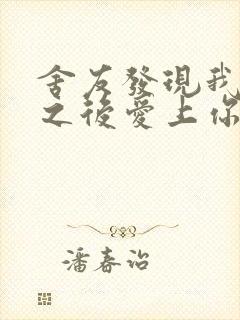 舍友發現我
之後愛上你
潘春治